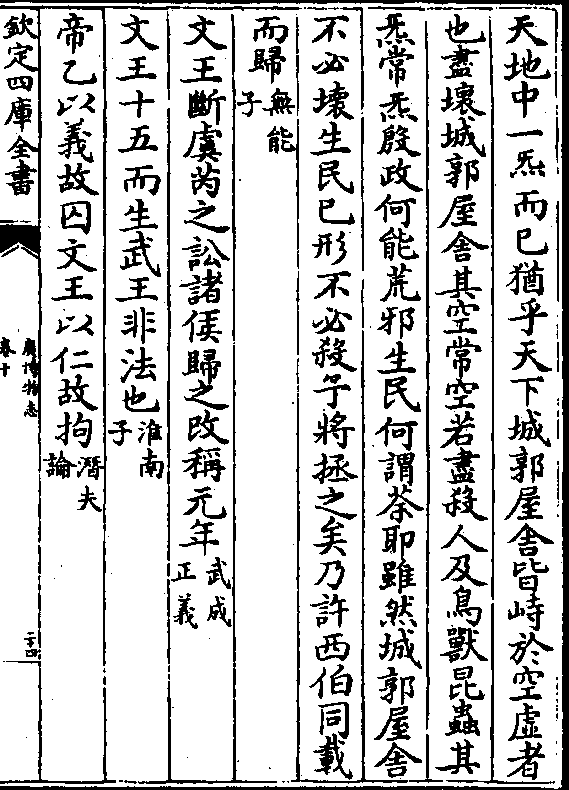 天地中一炁而已猶乎天下城郭屋舎皆峙於空虛者
也盡壞城郭屋舎其空常空若盡殺人及鳥獸昆蟲其
炁常炁殷政何能荒邪生民何謂荼耶雖然城郭屋舎
不必壞生民已形不必殺予將拯之矣乃許西伯同載
而歸無能子
文王斷虞芮之訟諸侯歸之改稱元年武成正義
文王十五而生武王非法也淮南子
帝乙以義故囚文王以仁故拘潛夫論
欽定四庫全書
廣博物志
卷十
二十四